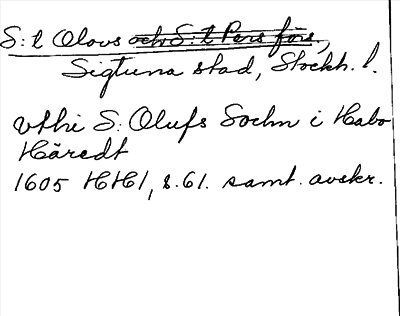 S:t Olovs och S:t Pers förs.,
Sigtuna stad, Stockh. l.
vthi S: Olufs Sochn i Habo
Häredt
1605 HH1, s.61. samt. avskr.